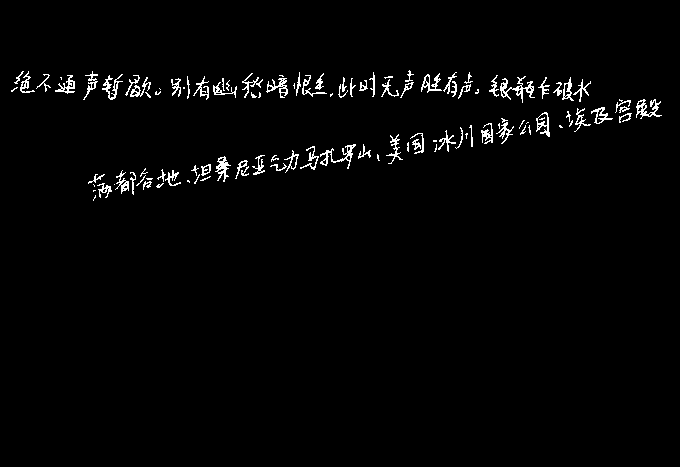 绝不通声暂歇。别有幽愁暗恨生,此时无声胜有声。银瓶乍破水
落都各地、坦桑尼亚乞力马扎罗山、美国冰川国家公园、埃及宫殿